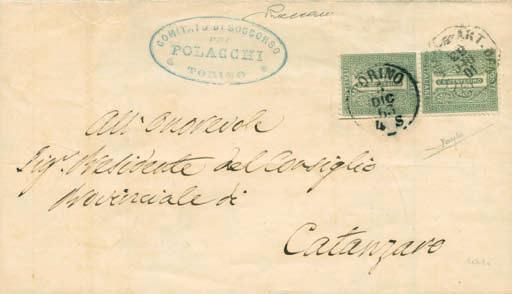 COMITATO DI SOCCORSO
PEI
POLACCHI
TORINO
TORINO
DIC
63
4 S.
All' Onorevole
Sigr. Presidente del Consiglio
Provinciale di
Catanzaro